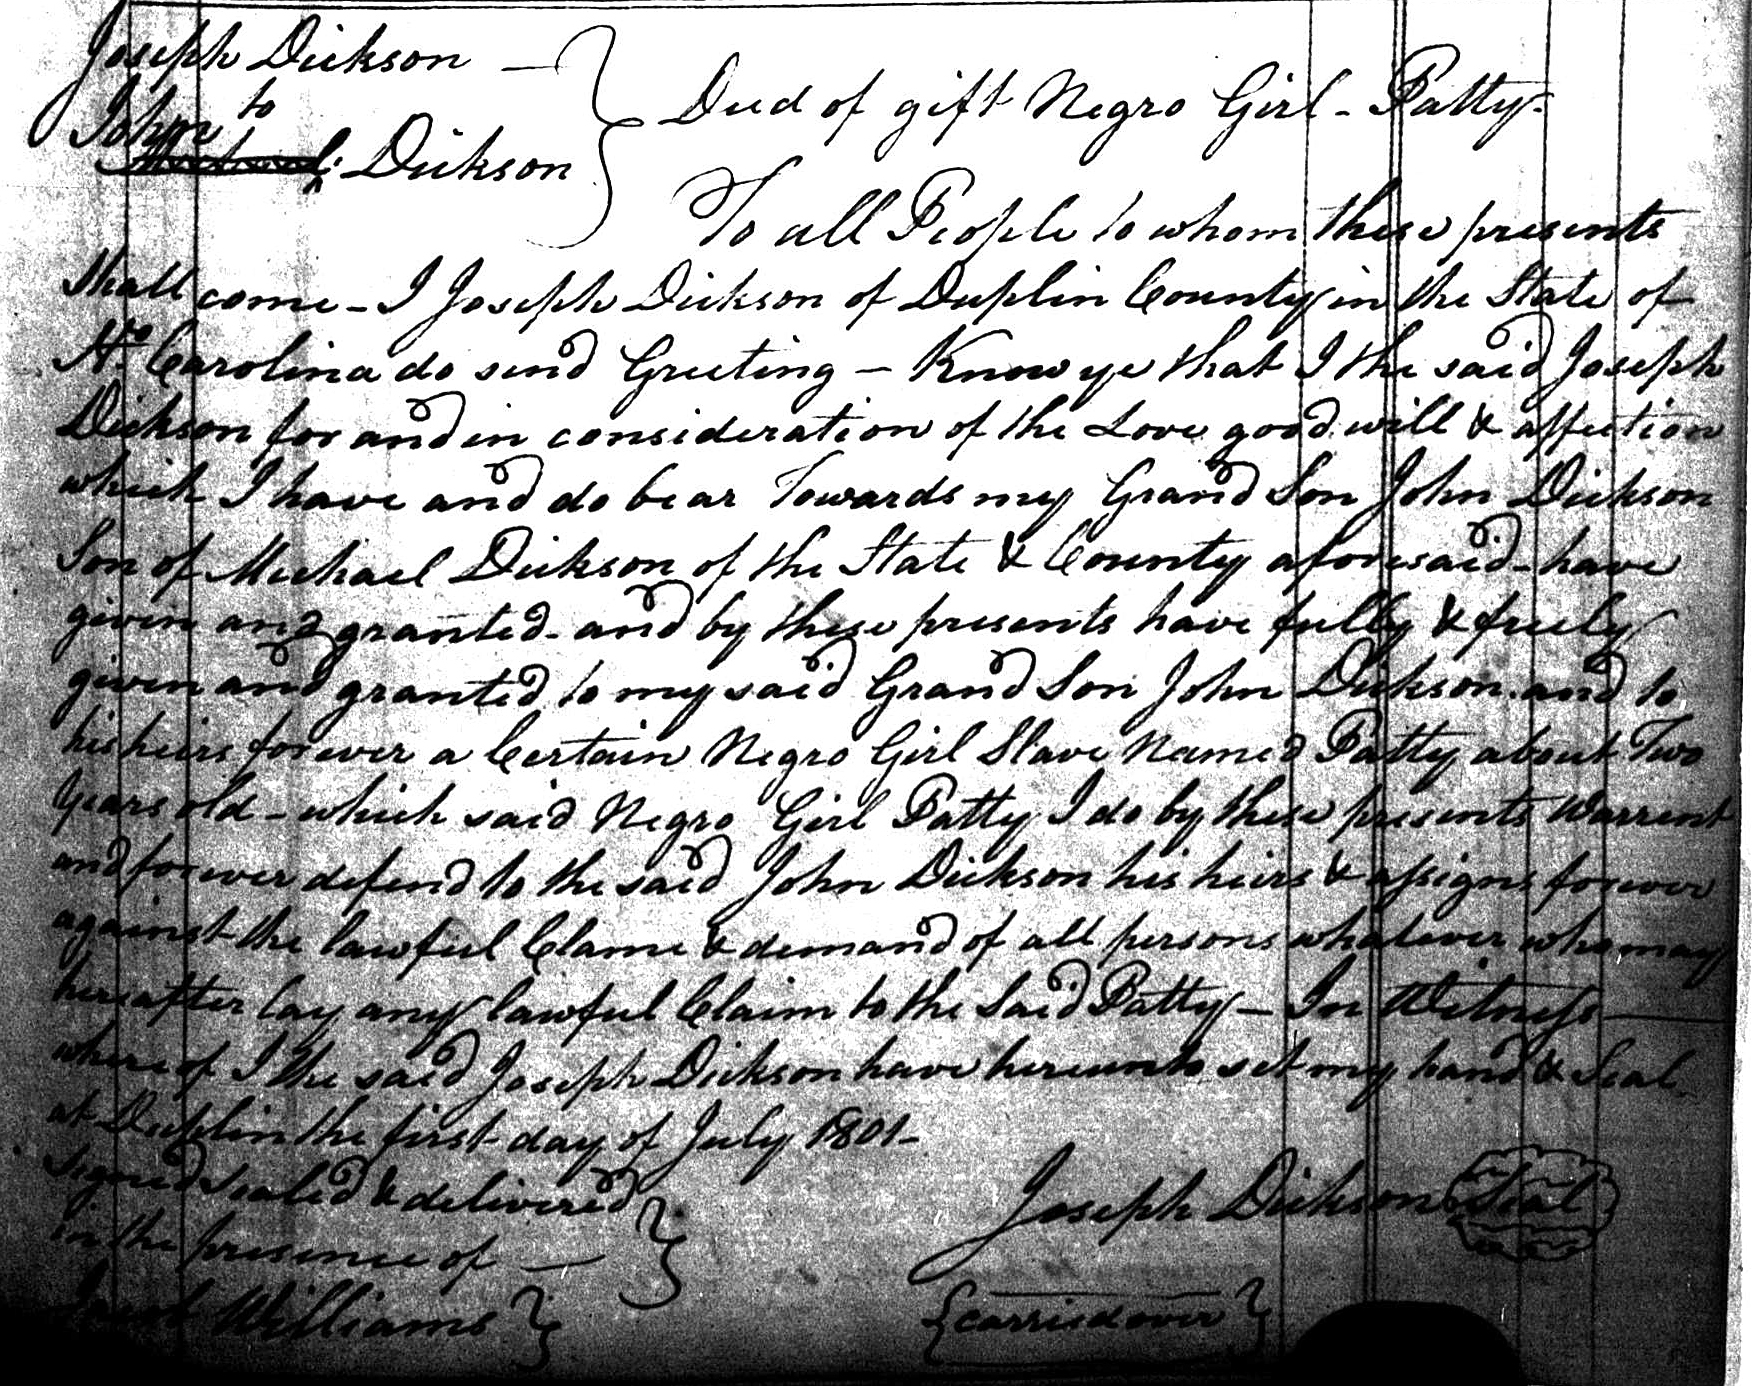 Joseph Dickson —
to
John
Michael Dickson
Deed of gift Negro Girl - Patty -
To all People to whom these presents
Shall come - I Joseph Dickson of Duplin County in the State of
No. Carolina do send Greeting — Know ye that I the said Joseph
Dickson for and in consideration of the Love good will & affection
which I have and do bear Towards my Grand Son John Dickson
Son of Michael Dickson of the State & County aforesaid - have
given and granted - and by these presents have fully & freely
given and granted to my said Grand Son John Dickson and to
his heirs forever a Certain Negro Girl Slave Named Patty about Two
years old - which said Negro Girl Patty I do by these presents Warrent
and forever defend to the said John Dickson his heirs & assigns forever
against the lawful Clame & demand of all persons whatever who may
hereafter lay any lawful Claim to the Said Patty — In Witness —
where of I the said Joseph Dickson have hereunto set my hand & Seal
at Duplin the first day of July 1801 -
Signed Sealed & delivered
in the presence of —
Joseph Dickson Seal
Williams
{carried over}